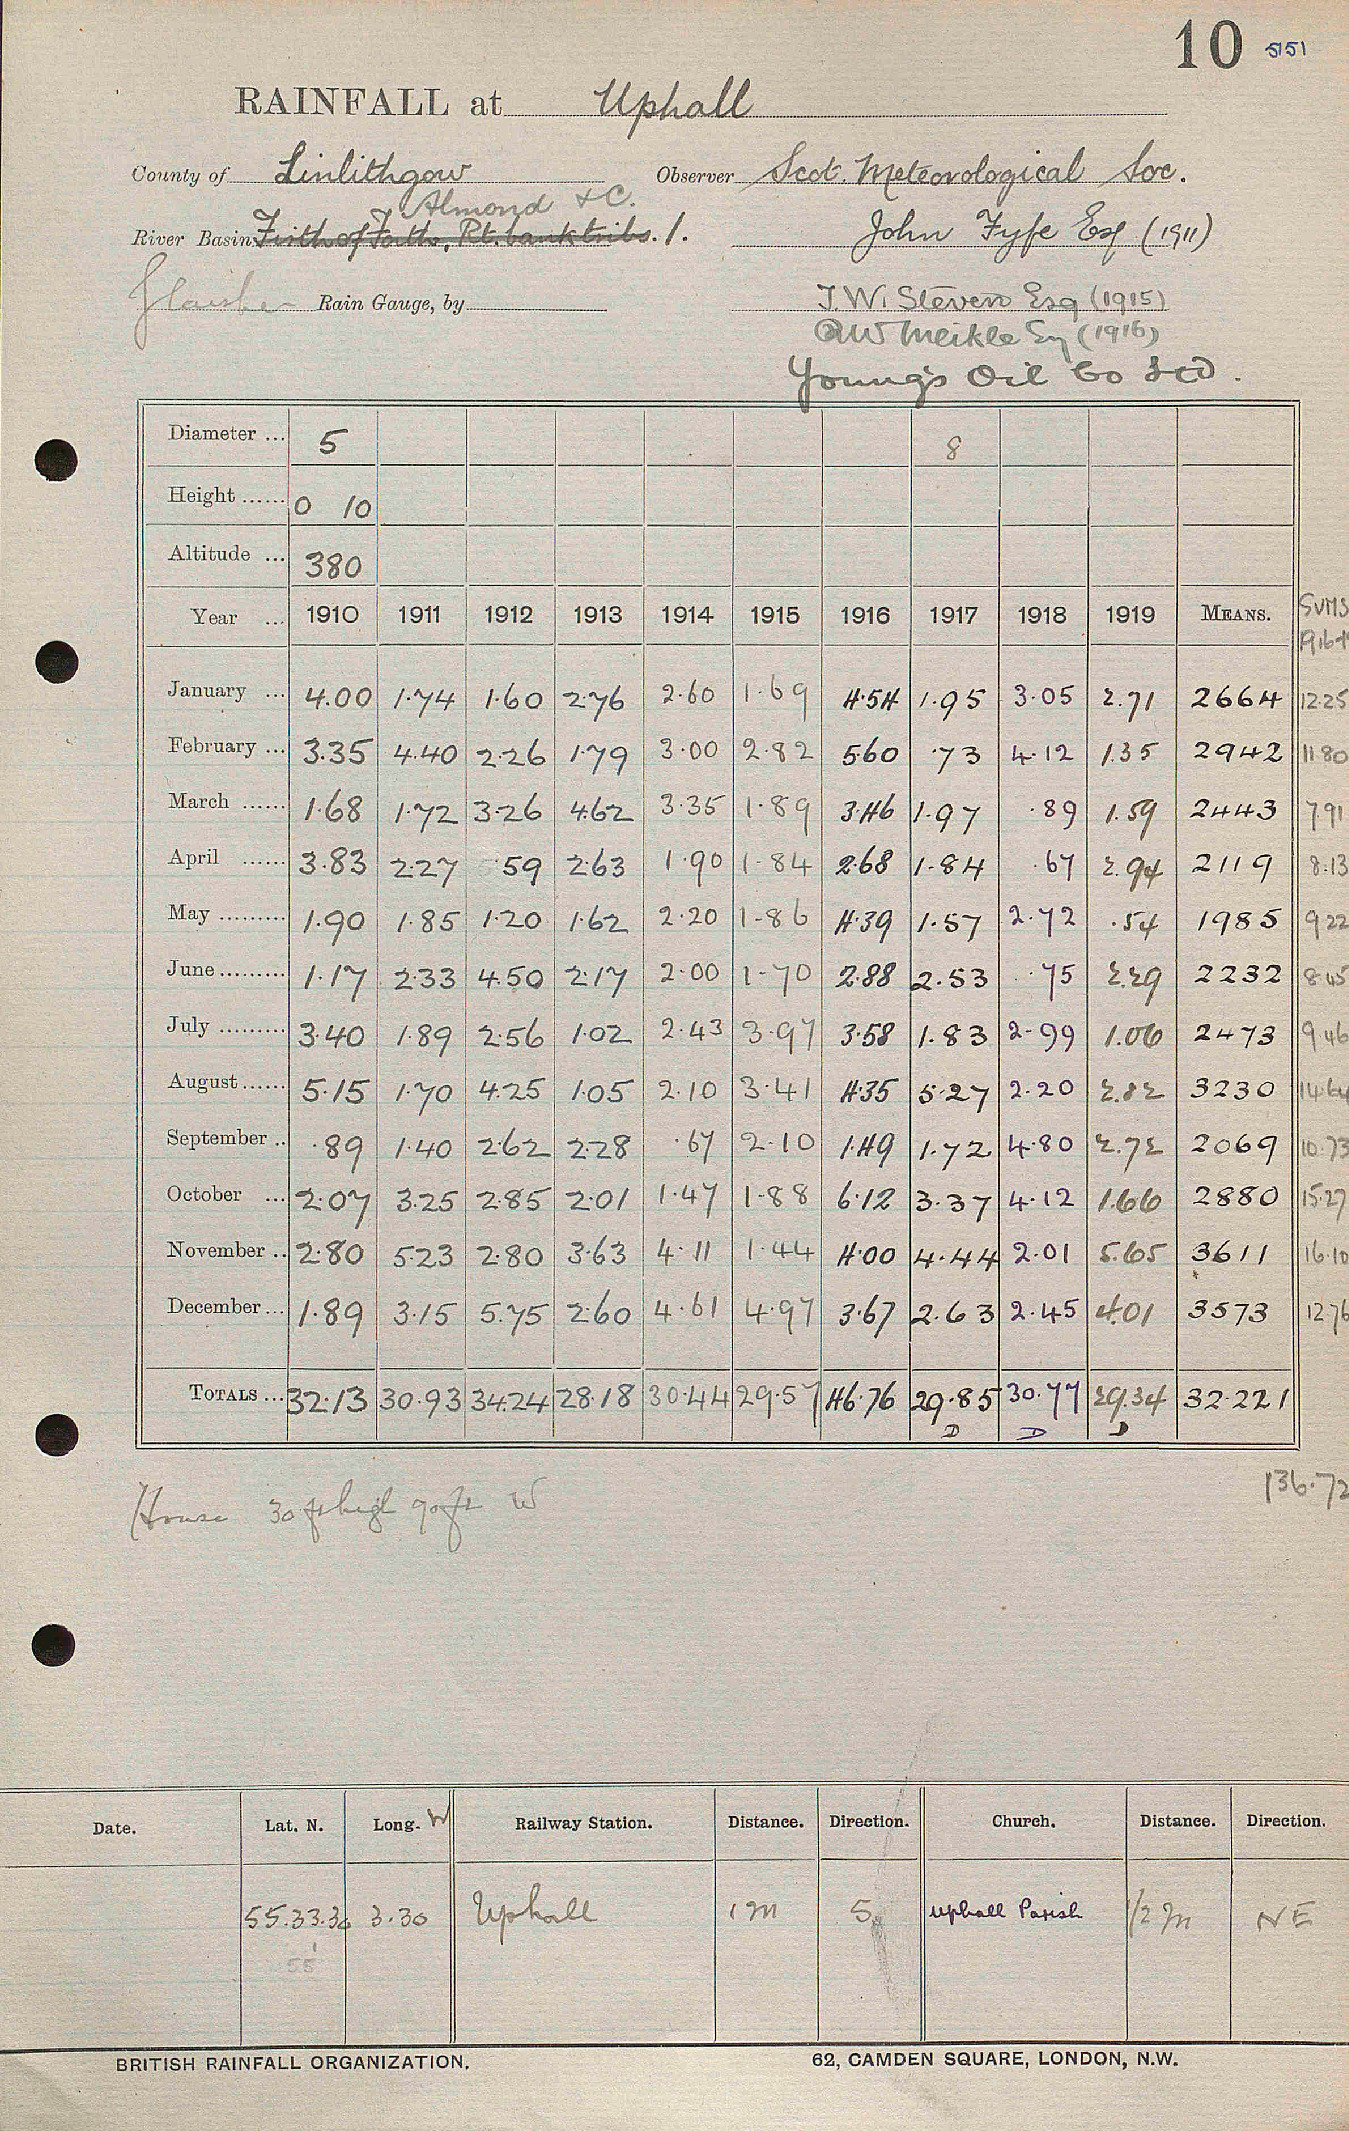 10 551
RAINFALL at Uphall
County of Linlithgow Observer Scot. Meteorological Soc.
Almond &C.
River Basin Firth of Forth, Rt. bank tribs. 1. John Fyfe Esq (1911)
Glaisher Rain Gauge, by T.W. Steven Esq (1915)
W Meikle Esq (1916)
Young's Oil Co Ltd.
Diameter ... 5 8
Height ...... 0 10
Altitude ... 380
Year ... 1910 1911 1912 1913 1914 1915 1916 1917 1918 1919 MEANS. SUMS
1916-1
January ... 4.00 1.74 1.60 2.76 2.60 1.69 4.54 1.95 3.05 2.71 2664 12.25
February ... 3.35 4.40 2.26 1.79 3.00 2.82 5.60 .73 4.12 1.35 2942 11.80
March ...... 1.68 1.72 3.26 4.62 3.35 1.89 3.46 1.97 .89 1.59 2443 7.91
April ...... 3.83 2.27 .59 2.63 1.90 1.84 2.68 1.84 .67 2.94 2119 8.13
May ......... 1.90 1.85 1.20 1.62 2.20 1.86 4.39 1.57 2.72 .54 1985 9.22
June ......... 1.17 2.33 4.50 2.17 2.00 1.70 2.88 2.53 .75 2.29 2232 8.45
July ......... 3.40 1.89 2.56 1.02 2.43 3.97 3.58 1.83 2.99 1.06 2473 9.46
August ...... 5.15 1.70 4.25 1.05 2.10 3.41 4.35 5.27 2.20 2.82 3230 14.64
September .. .89 1.40 2.62 2.28 .67 2.10 1.49 1.72 4.80 2.72 2069 10.73
October ... 2.07 3.25 2.85 2.01 1.47 1.88 6.12 3.37 4.12 1.66 2880 15.27
November .. 2.80 5.23 2.80 3.63 4.11 1.44 4.00 4.44 2.01 5.65 3611 16.10
December ... 1.89 3.15 5.75 2.60 4.61 4.97 3.67 2.63 2.45 4.01 3573 12.76
TOTALS ... 32.13 30.93 34.24 28.18 30.44 29.57 46.76 29.85 30.77 29.34 32.221
D D D
136.72
House 30 ft high 90 ft W
Date. Lat. N. Long. W Railway Station. Distance. Direction. Church. Distance. Direction.
55.33.30 3.30 Uphall 1 m S Uphall Parish 1/2 m NE
55
BRITISH RAINFALL ORGANIZATION. 62, CAMDEN SQUARE, LONDON, N.W.